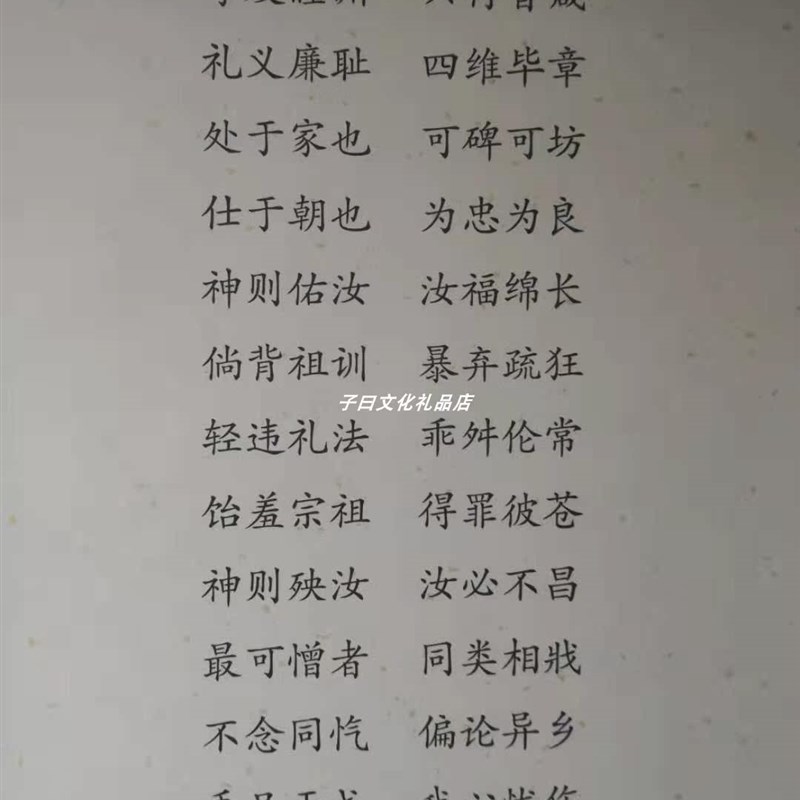 礼义廉耻 四维毕章
处于家也 可碑可坊
仕于朝也 为忠为良
神则佑汝 汝福绵长
倘背祖训 暴弃疏狂
子曰文化礼品店
轻违礼法 乖舛伦常
饴羞宗祖 得罪彼苍
神则殃汝 汝必不昌
最可憎者 同类相戕
不念同忾 偏论异乡